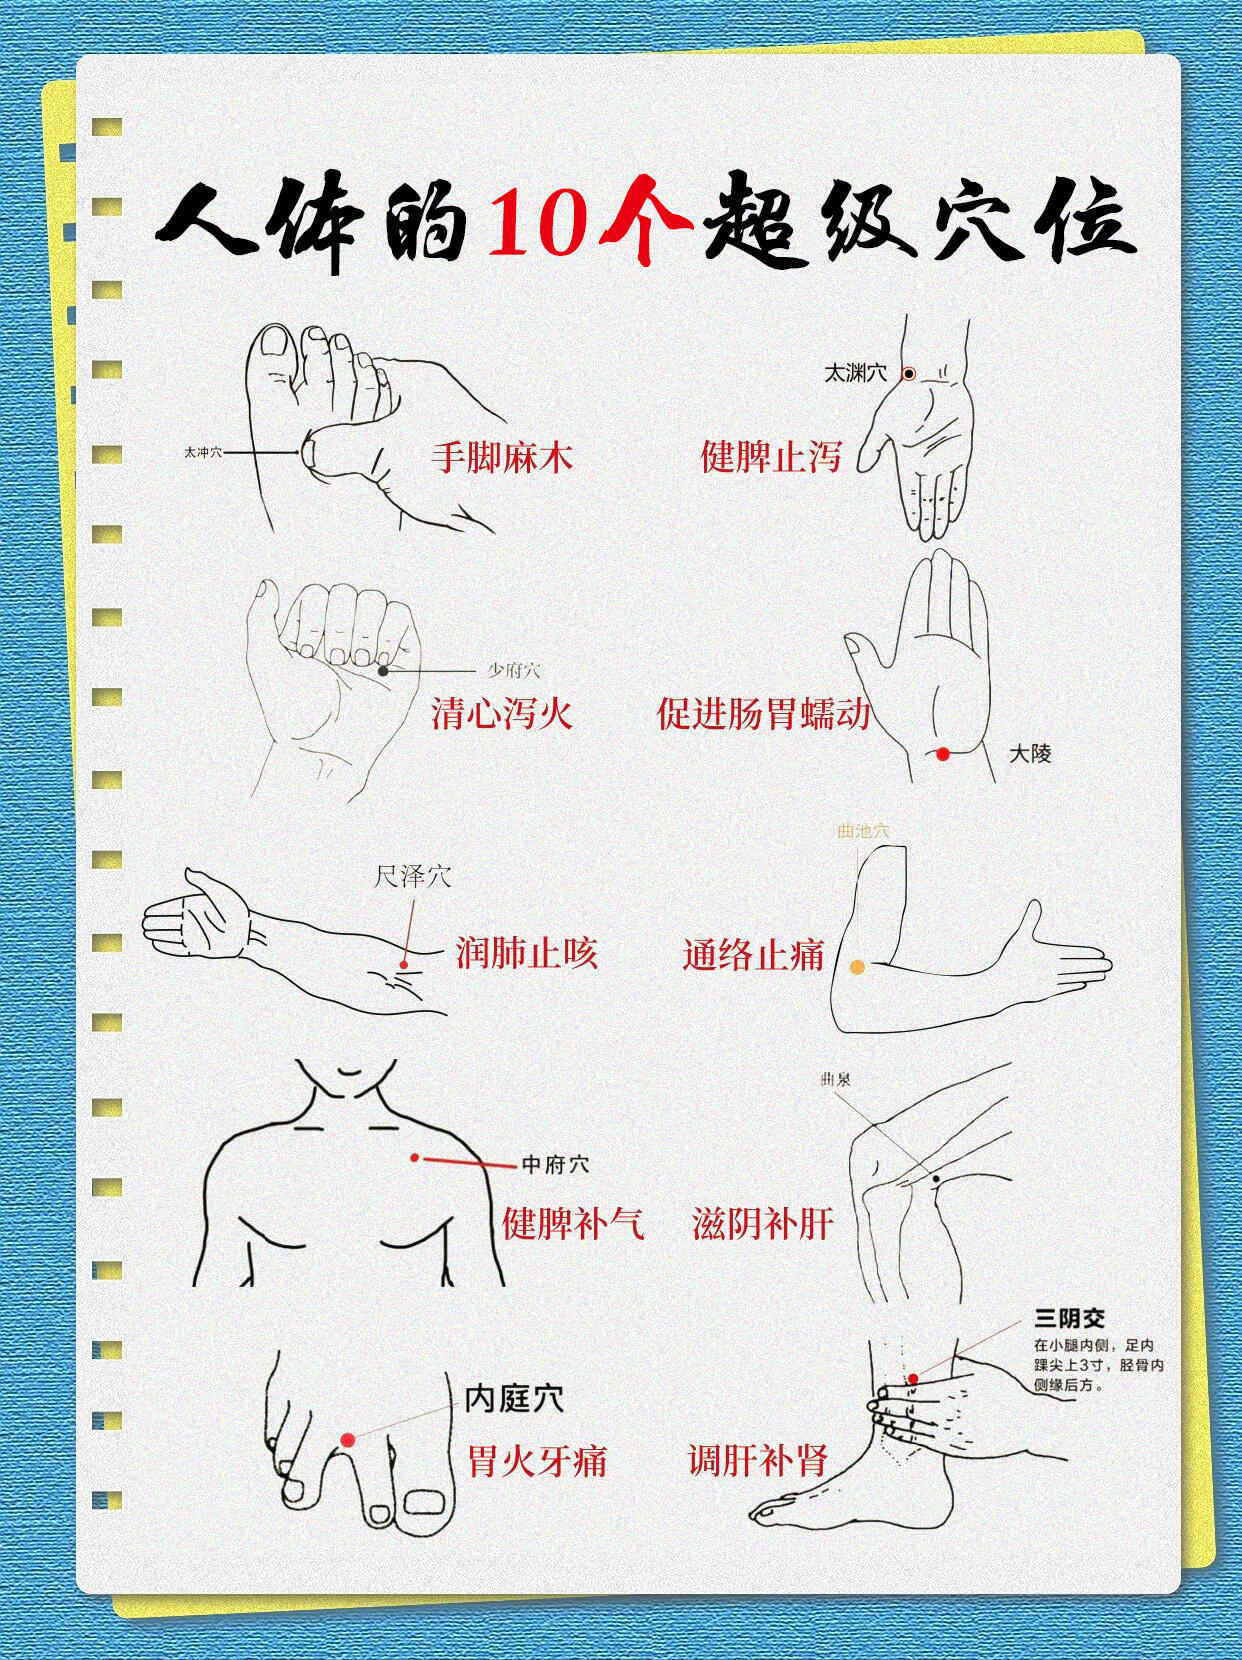 人体的10个超级穴位
太冲穴
手脚麻木
太渊穴
健脾止泻
少府穴
清心泻火
促进肠胃蠕动
大陵
尺泽穴
润肺止咳
曲池穴
通络止痛
中府穴
健脾补气
曲泉
滋阴补肝
内庭穴
胃火牙痛
三阴交
在小腿内侧，足内
踝尖上3寸，胫骨内
侧缘后方。
调肝补肾